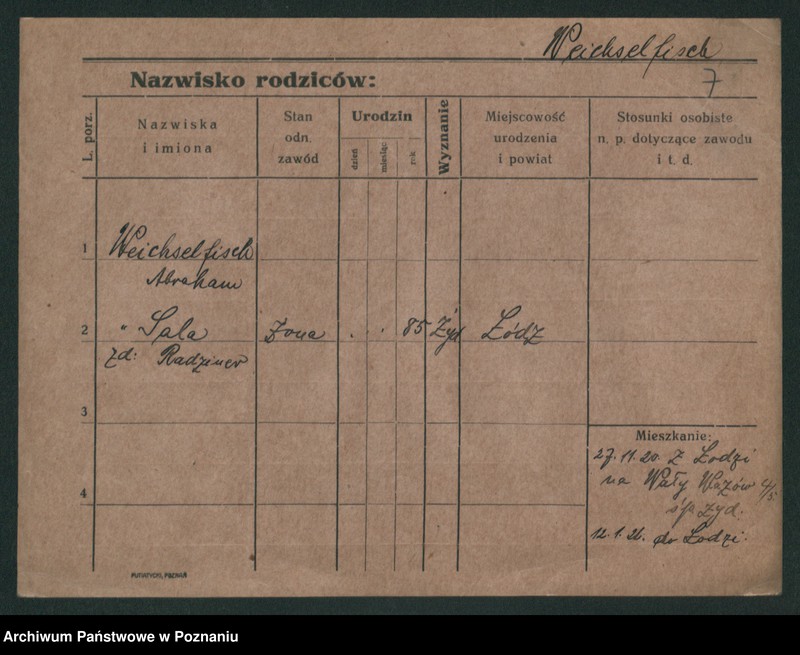 Weichselfisch
7
Nazwisko rodziców:
L. porz.
Nazwiska
i imiona
Stan
odn.
zawód
Urodzin
dzień
miesiąc
rok
Wyznanie
Miejscowość
urodzenia
i powiat
Stosunki osobiste
n. p. dotyczące zawodu
i t. d.
1 Weichselfisch
Abraham
2 " Sala żona . . . 85 Żyd Łódź
zd: Radziner
3
4
Mieszkanie:
27.11.20. z Łodzi
na Wały Wazów 4/5
żyd.
12.1.21. do Łodzi.
PUTIATYCKI, POZNAŃ
Archiwum Państwowe w Poznaniu